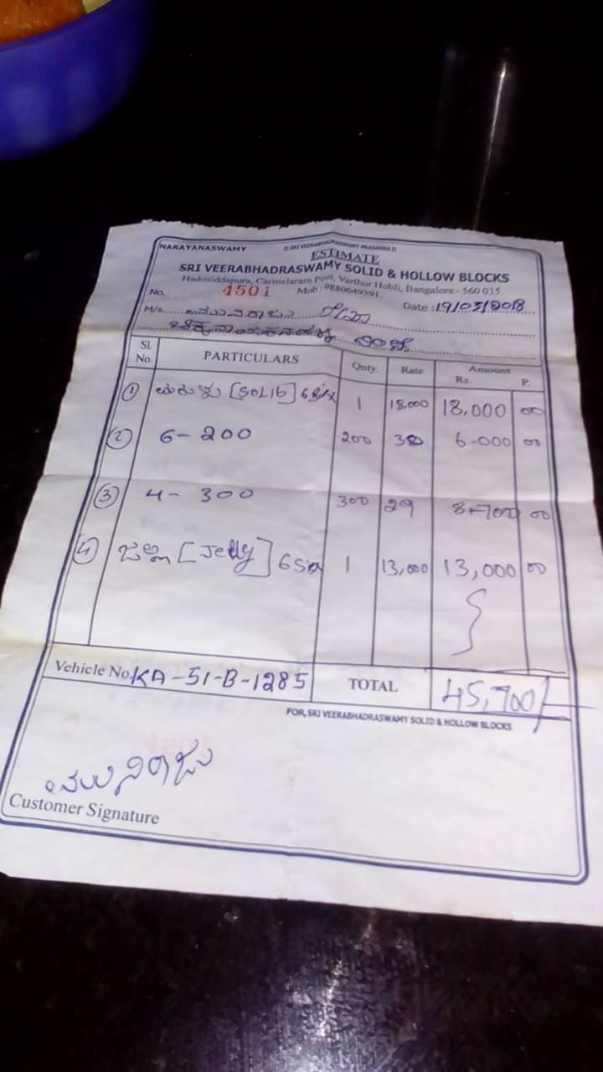 NARAYANASWAMY
ESTIMATE
SRI VEERABHADRASWAMY SOLID & HOLLOW BLOCKS
Carmelaram Post, Varthur Hobli, Bangalore - 560 035
No. 4501 Mob : Date : 19/03/2018
M/s.
Sl. No. PARTICULARS Qnty. Rate Amount Rs. P.
1 [SOLID] 1 18,000 18,000 00
2 6 - 200 200 30 6-000 00
3 4 - 300 300 29 8-700 00
4 ಜಲ್ಲಿ [Jelly] 1 13,000 13,000 00
Vehicle No. KA-51-B-1285 TOTAL 45,700/-
FOR, SRI VEERABHADRASWAMY SOLID & HOLLOW BLOCKS
ಮುನಿರಾಜು
Customer Signature